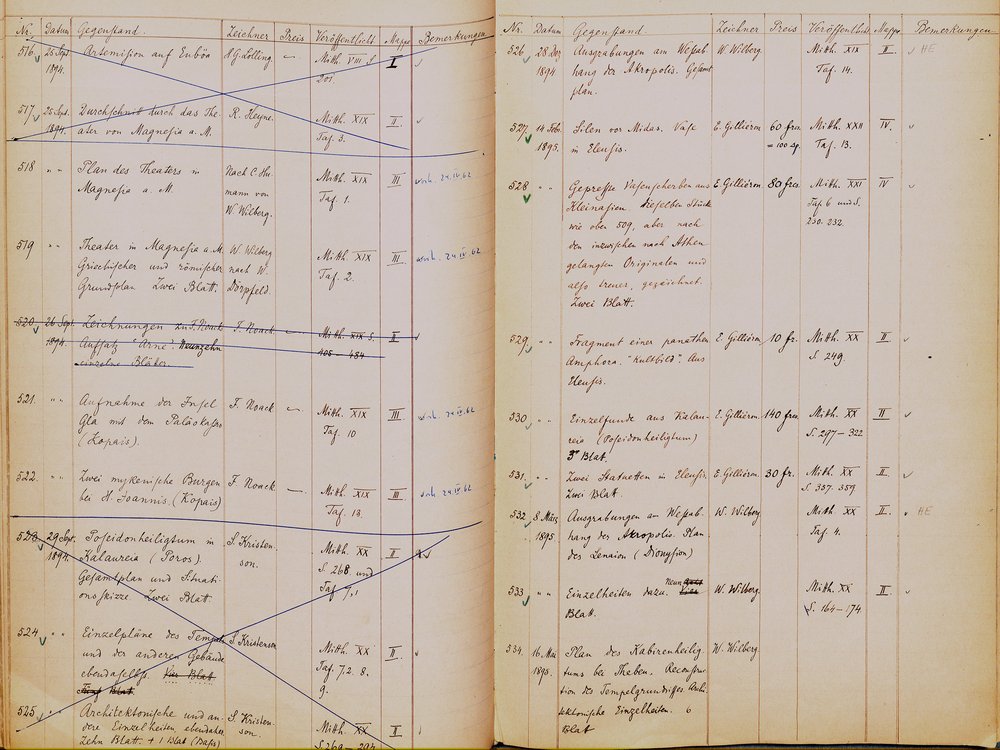 Nr. Datum Gegenstand. Zeichner Preis Veröffentlicht Mappe Bemerkungen
516 25 Sept. Artemision auf Euböa H. G. Lolling — Mitth. VIII S. I
1894. 201.
517 25 Sept. Durchschnitt durch das The- R. Heyne. Mitth. XIX II
1894. ater von Magnesia a. M. Taf. 3.
518 " " Plan des Theaters in Nach C. Hu- Mitth. XIX III 24.IV.62
Magnesia a. M. mann von Taf. 1.
W. Wilberg.
519 " " Theater in Magnesia a. M. W. Wilberg Mitth. XIX III 24.IV.62
Griechischer und römischer nach W. Taf. 2.
Grundplan. Zwei Blatt. Dörpfeld.
520 26 Sept. Zeichnungen zu F. Noack F. Noack — Mitth. XIX S. II
1894. Aufsatz "Arne". Neunzehn 405 - 484
einzelne Blätter.
521. " " Aufnahme der Insel F. Noack — Mitth. XIX III 24.IV.62
Gla mit dem Paläokastro Taf. 10
(Kopais).
522. " " Zwei mykenische Burgen F. Noack — Mitth. XIX III 24.IV.62
bei H. Joannis. (Kopais) Taf. 13.
523 29 Sept. Poseidonheiligtum in S. Kristen- Mitth. XX II
1894. Kalaureia (Poros). son. S. 268. und
Gesamtplan und Situati- Taf 7,1
onsskizze. Zwei Blatt.
524 " " Einzelpläne des Tempels S. Kristenson Mitth. XX II.
und der anderen Gebäude Taf. 7.2. 8.
ebendaselbst. Vier Blatt 9.
Fünf Blat.
525 " " Architektonische und an- S. Kristen- Mitth. XX II
dere Einzelheiten, ebendaher son. S. 269 - 294
Zehn Blatt. + 1 Blat (Basis)
Nr. Datum Gegenstand. Zeichner Preis Veröffentlicht Mappe Bemerkungen
526 28 Dez. Ausgrabungen am Westab- W. Wilberg Mitth. XIX II HE
1894 hang der Akropolis. Gesamt- Taf. 14.
plan.
527. 14 Feb. Silen vor Midas. Vase E. Gilliéron 60 frcs Mitth. XXII IV.
1895. in Eleusis. = 100 Taf. 13.
528 " " Gepresste Vasenscherben aus E. Gilliéron. 80 frcs Mitth. XXI IV
Kleinasien. Dieselben Stücke Taf. 6 und S.
wie oben 509, aber nach 230. 232.
den inzwischen nach Athen
gelangten Originalen und
also treuer, gezeichnet.
Zwei Blatt.
529 " " Fragment einer panathen. E. Gilliéron. 10 fr. Mitth. XX II
Amphora. "Kultbild". Aus S. 249.
Eleusis.
530 " " Einzelfunde aus Kalau- E. Gilliéron. 140 frcs Mitth. XX II
reia (Poseidonheiligtum) S. 297 - 322
3 Blat.
531. " " Zwei Statuetten in Eleusis. E. Gilliéron. 30 fr. Mitth. XX II.
Zwei Blatt. S. 357. 359
532 8 März Ausgrabungen am Westab- W. Wilberg Mitth XX II. HE
1895. hang der Akropolis. Plan Taf. 4.
des Lenaion (Dionysion)
533 " " Einzelheiten dazu. Neun W. Wilberg. Mitth. XX II
Blatt. S. 164 - 174.
534. 16. Mai Plan des Kabirenheilig- W. Wilberg
1895. tums bei Theben. Reconstruc-
tion des Tempelgrundrisses Archi-
tektonische Einzelheiten. 6
Blat